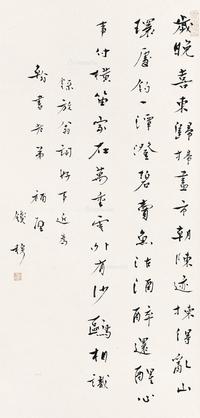 歲晚喜東歸掃盡市朝陳迹揀得亂山
環處釣一潭澄碧賣魚沽酒醉還醒心
事付橫笛家在萬重雲外有沙鷗相識
錄放翁詞好事近為
書老弟補壁
錢穆